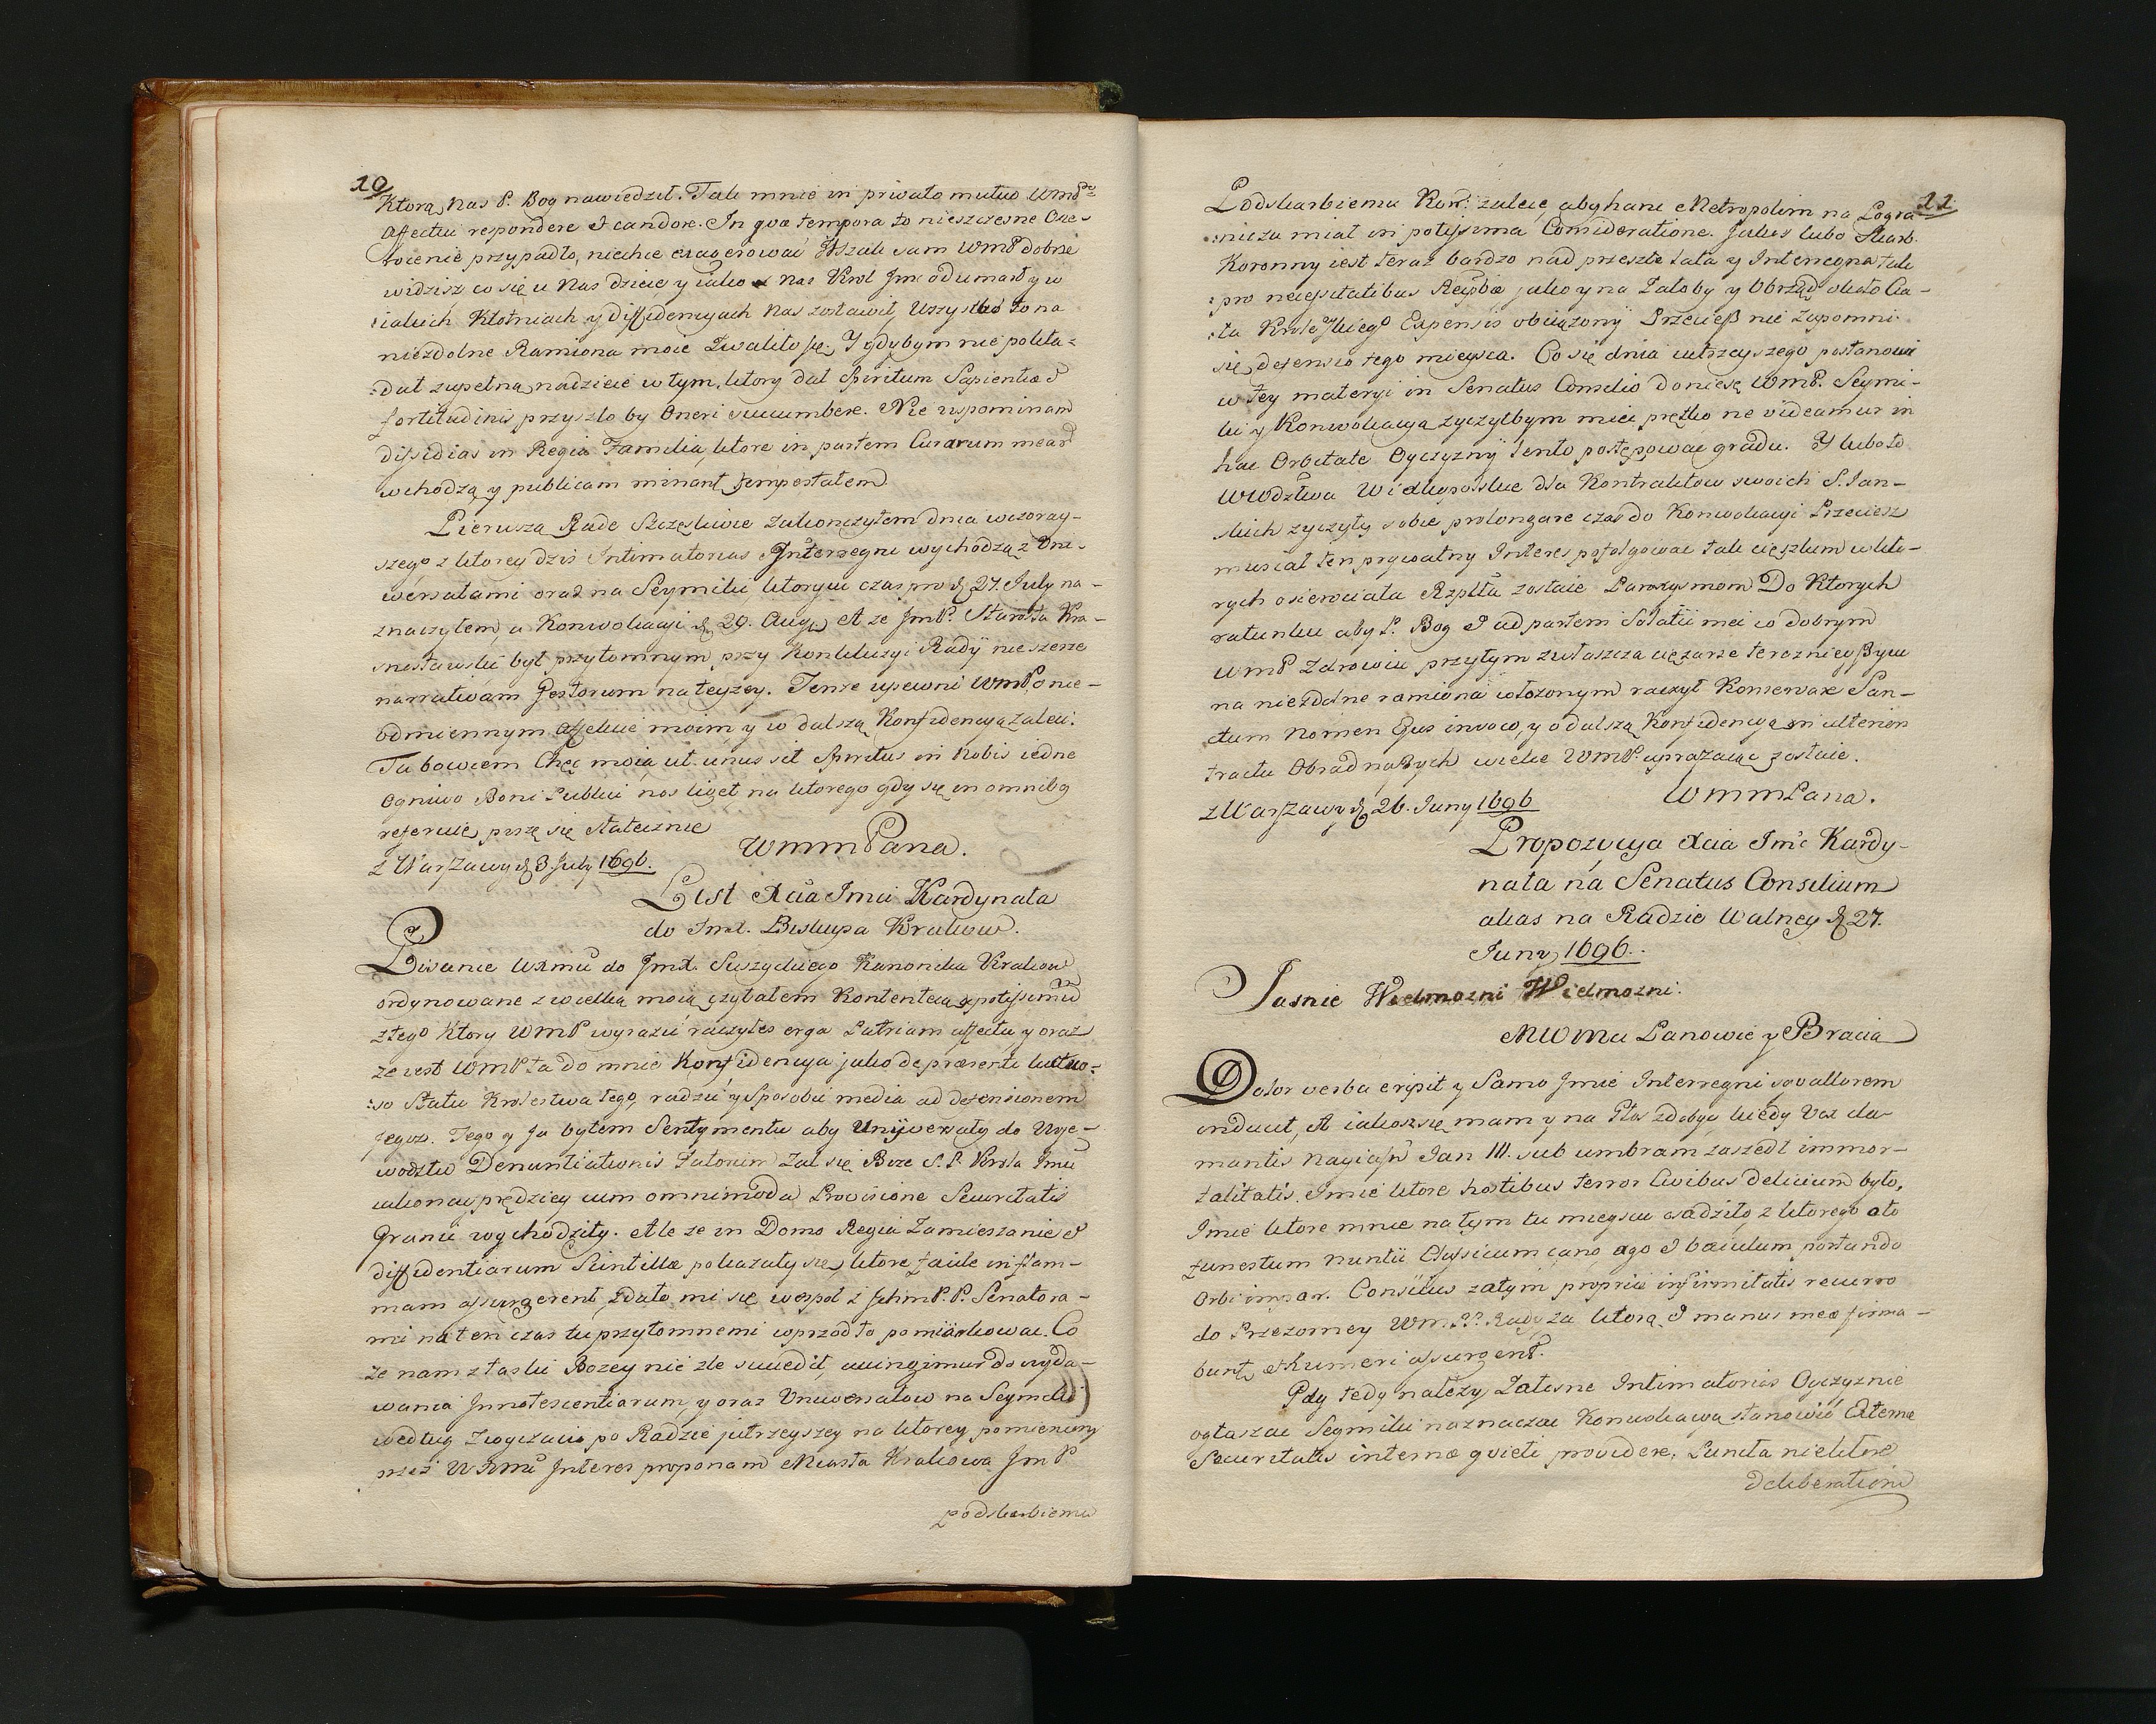 10
Ktorą Nas P. Bog nawiedził. Tak mnie in privato mutuo WmP
Affectu respondere & candore. In qvæ tempora to nieszczesne Osie-
rocenie przypadło, niechce exagerować Wszak sam WmP dobrze
widzisz co się u Nas dzieie y iako Nas Krol Jmc odumarł y w
iakich Kłotniach y diffidencyach Nas zostawił, Wszystko to na
niezdolne Ramiona moie Zwaliło się. Y gdybym nie pokła-
dał zupełną nadzieię w tym, ktory dał Spiritum Sapientiæ &
fortitudinis przyszło by Oneri succumbere. Nie wspominam
dissidias in Regia Familia, ktore in partem Curarum mearum
wchodzą y publicam minant tempestatem
Pierwszą Radę Szczęśliwie zakonczyłem dnia wczoray-
szego z ktorey dziś Intimatorias Interregni wychodzą z Uni-
wersałami oraz na Seymiki ktorym czas pro d. 27. July na-
znaczyłem, a Konwokacyi d. 29. Aug. A ze JmP. Starosta Kra-
snostawski był przytomnym przy Konkluzyi Rady nie szerzę
narrativam gestorum na teyzey. Tenze upewni WmP, o nie-
odmiennym Affekcie moim y w dalszą Konfidencyą zaleci.
Ta bowiem Chęć moia, ut unus sit Spiritus in Nobis iedne
Ogniwo Boni Publici nos liget, na ktorego gdy się in omnibg
referuię piszę się statecznie
WmmPana.
z Warszawy d. 3 July 1696.
List Xcia Jmci Kardynała
do Jmx. Biskupa Krakow.
Pisanie Wxmci do Jmx. Suszyckiego Kanonika Krakow
ordynowane z wielką moią czytałem Kontentecą, potissimum
z tego Ktory WmP wyrazić raczyłes erga Patriam affectu y oraz
ze iest WmP ta do mnie Konfidencya jako de præsenti luctuo-
so Statu Krolestwa tego, radzić y Sposobić media ad defensionem
jegoz. Tego y Ja byłem Sentymentu aby Uniwersały do Woje-
wodztw Denuntiationis Fatorum Zal się Boze S. P. Krola Jmci
iako nayprędziey cum omnimoda Provisione Securitatis
Granic wychodziły. Ale ze in Domo Regia Zamieszanie &
diffidentiarum Scintillæ pokazały się, ktore facile in flam-
mam assurgerent, zdało mi się wespoł z JchmP.P. Senatora-
mi na ten czas tu przytomnemi wprzod to pomiarkować. Co
ze nam z łaski Bozey nie źle succedit, accingimur do wyda-
wania Innotescentiarum, y oraz Uniwersałow na Seymiki
według Zwyczaiu po Radzie jutrzeyszey na ktorey pomieniony
przez Wxmci Interes proponam Miasta Krakowa JmP
podskarbiemu
11
Podskarbiemu Kor: zalecę, aby hanc Metropolim na Pogra-
niczu miał in potissima Consideratione. Jakoz lubo Skarb
Koronny iest teraz bardzo nad przeszłe lata y Interregna tak
pro necessitatibus Reipbæ jako y na Załoby y Obrząd około Cia-
ła Krolewskiego Expensis obciązony Przecieß nie zapomni
się defensio tego mieysca. Co się dnia jutrzeyszego postanowi
w tey materyi in Senatus Consilio doniosę WmP. Seymi-
ki y Konwokacyą zyczyłbym miec prętko ne videamur in
hac Orbitate Oyczyzny lento postępować gradu. Y lubo to
WWdztwa Wielkopolskie dla Kontraktow swoich S. Jan-
skich zyczyły sobie prolongare czas do Konwokacyi Przeciesz
musiał ten prywatny Interes pofolgować tak cięszkim w kto-
rych osierociała Rzplta zostaie Paroxysmom Do Ktorych
ratunku aby P. Bog & ad partem Solatii mei w dobrym
WmP Zdrowiu przytym zwłaszcza cięzarze teraznieyßym
na niezdolne ramiona włozonym raczył Konserwować San-
ctum Nomen Ejus invoco, y o dalszą Konfidencyą in ulteriori
tractu Obrad naßych wielce WmP. upraszaiąc zostaię.
WmmPana.
z Warszawy d. 26. Juny 1696
Propozycya Xcia Jmc Kardy-
nała ná Senatus Consilium
alias na Radzie Walney d. 27.
Juny 1696.
Jasnie Wielmozni Wielmozni.
MWMci Panowie y Bracia
Dolor verba eripit y Samo Jmie Interregni squallorem
inducit, A iakosz się mam y na Głos zdobyc kiedy Vox cla-
mantis Nayias. Jan III. sub umbram zaszedł immor-
talitatis. Jmie ktore hostibus terror Civibus delicium było,
Jmie ktore mnie na tym tu mieyscu osadziło, z ktorego oto
funestum nuntii Classicum cano, ago & baiulum, portando
Orbi impar. Conscius zatym propriæ infirmitatis recurro
do Przezorney Wm.PP. Rady za ktorą & manus meæ firma-
bunt, et humeri assurgent.
Gdy tedy nalezy Załosne Intimatorias Oyczyznie
ogłaszac Seymiki naznaczac Konwokacyą stanowić Externæ
Securitatis internæ qvieti providere, Puncta niektore
deliberationi